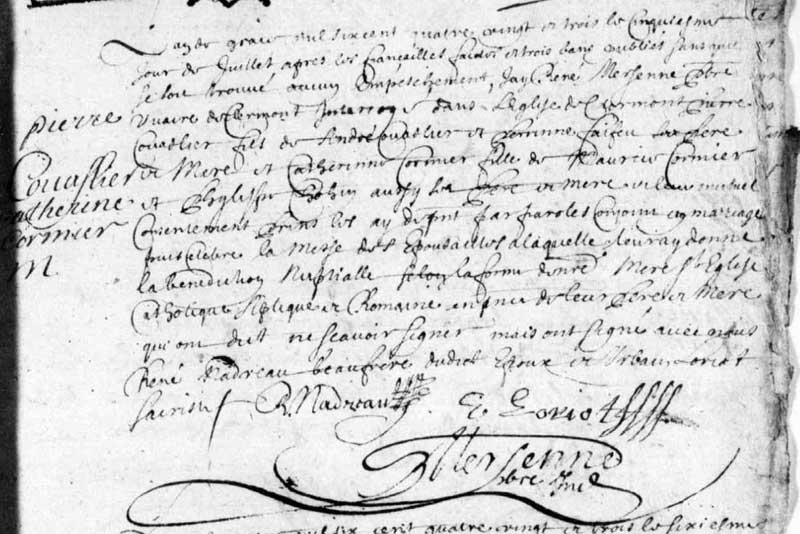 Lan de grace mil six cent quatre vingt et trois le cinquiesme
Jour de Juillet apres les fiancailles faictes et trois bans publiés sans que
se soit trouvé aucun Empeschement, Jay René Mersenne pbre
vicaire de Clermont Interrogé dans Leglise de Clermont Pierre
Couallier fils de André Couallier et Perrinne ses pere
et Mere et Catherinne Cormier fille de Maurice Cormier
et aussy ses pere et mere et leur mutuel
Consentement prins les ay Conjoint par paroles en mariage
puis celebré la Messe des Epousailles a laquelle leur ay donné
la benediction Nuptialle selon la forme de nre Mere Ste Eglise
Catholique Aplique et Romaine en pnce de leur pere et Mere
qui ont dict ne scavoir signer mais ont signé avec nous
René Nadreau beaufrere dudict Epoux et Urbain Loriot
sacriste
R. Nadreau
Loriot
Mersenne
pbre
Pierre
Couallier
Catherine
Cormier
M
mil six cent quatre vingt et trois le sixiesme